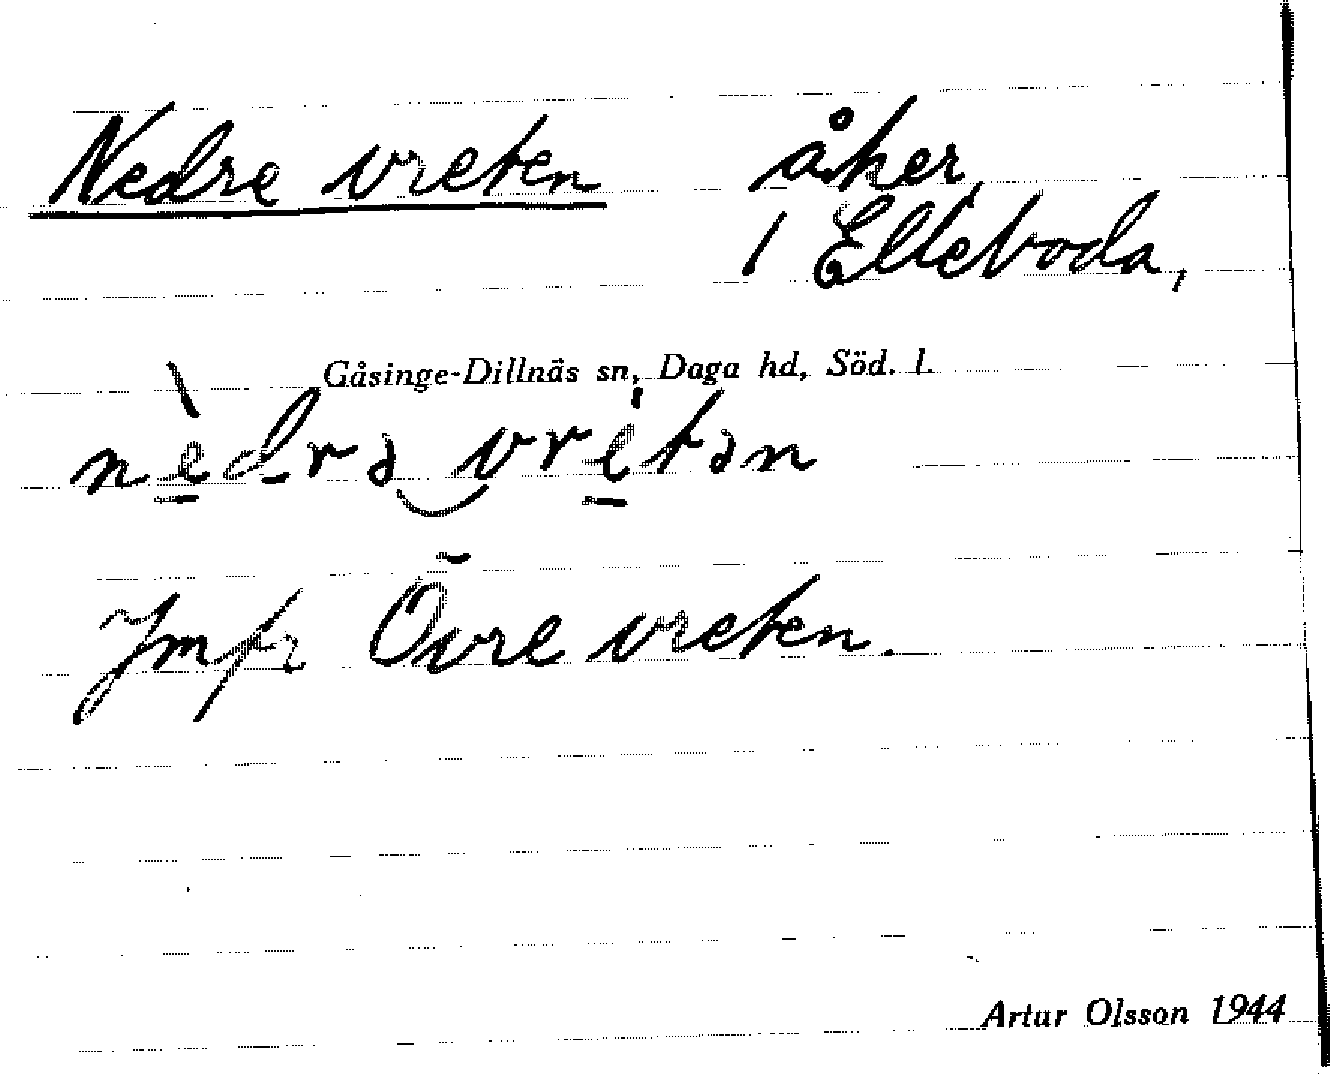 Nedre vreten åker,
1 Elleboda,
Gåsinge-Dillnäs sn, Daga hd, Söd. l.
nèdrə vrétən
Jmfr Övre vreten.
Artur Olsson 1944